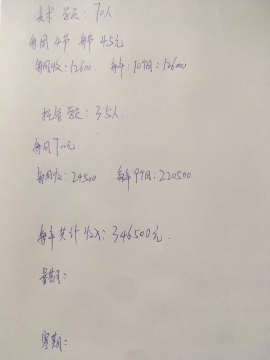 美术 学员：70人
每周4节 每节45元
每月收：12600 每年：10个月：126000
托管学员：35人
每月700元
每月收：24500 每年9个月：220500
每年共计收入：346500元．
暑期：
寒期：